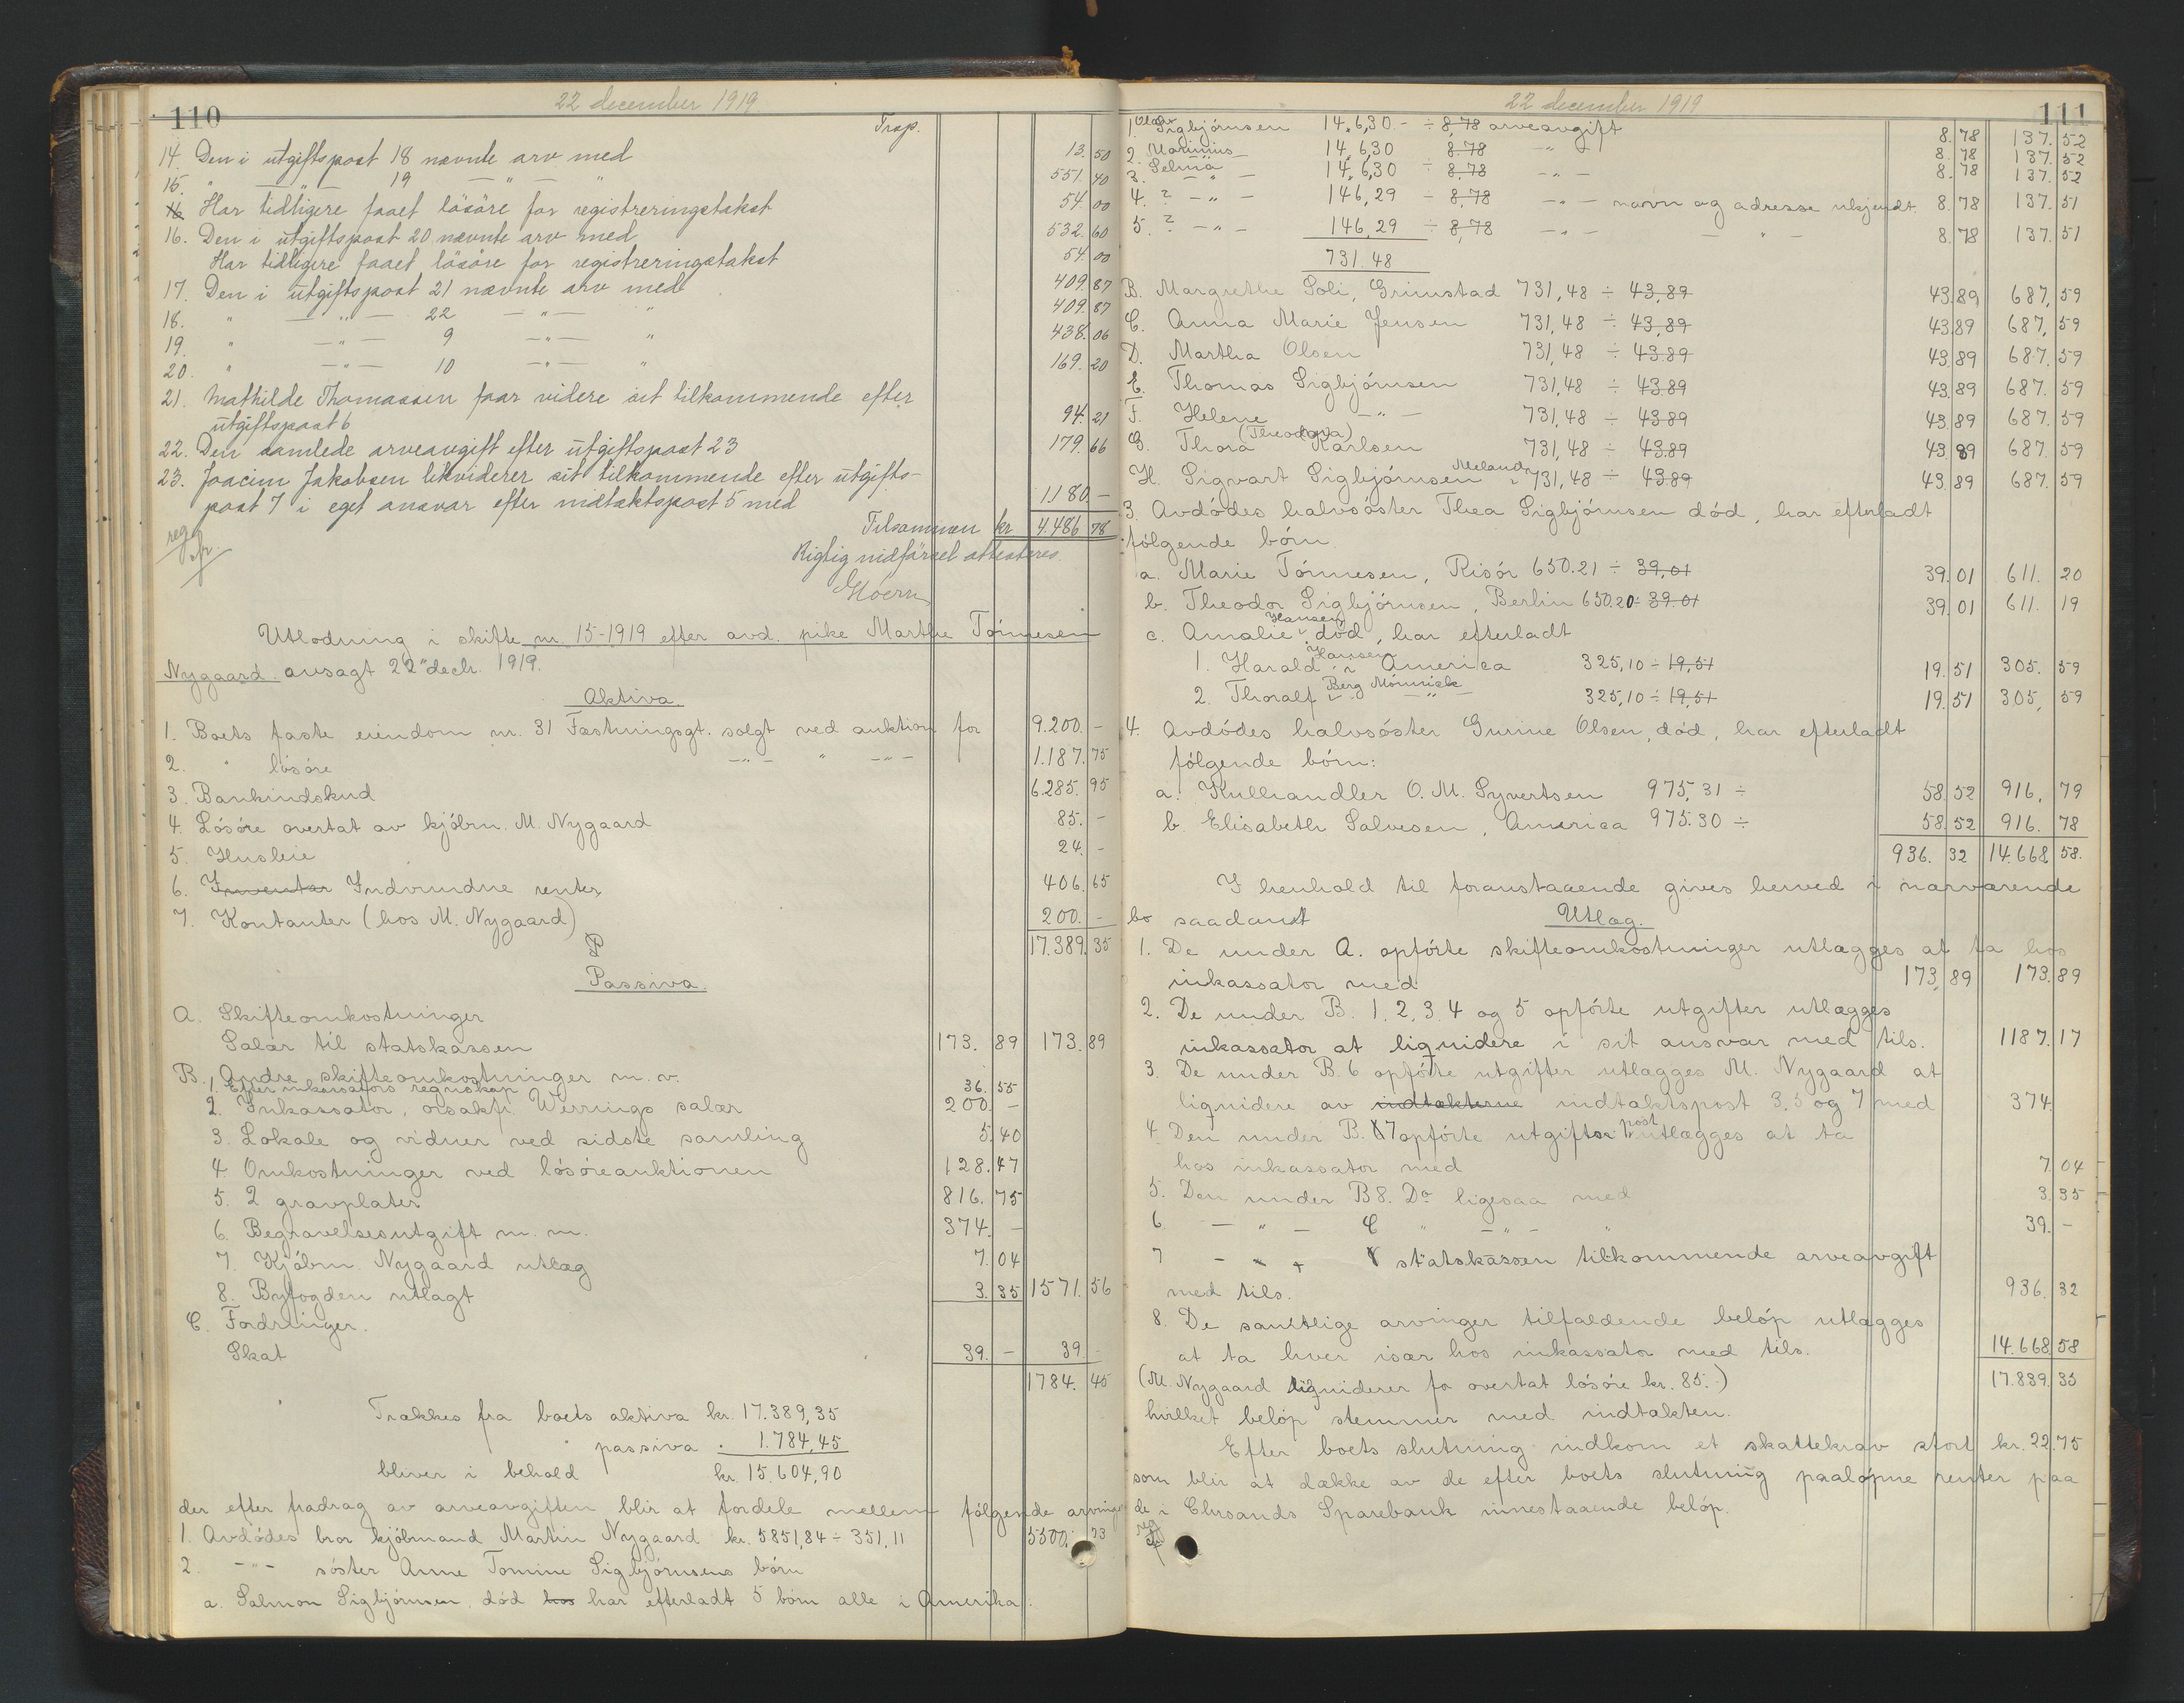 110
22 december 1919
Trsp.
14. Den i utgiftspost 18 nævnte arv med 13.50
15. " — " — 19 — " — " 551.40
Har tidligere faaet lösöre for registreringstakst 54.00
16. Den i utgiftspost 20 nævnte arv med 532.60
Har tidligere faaet lösöre for registreringstakst 54.00
17. Den i utgiftspost 21 nævnte arv med 409.87
18. " — " — 22 — " — " 409.87
19. " — " — 9 — " — " 438.06
20. " — " — 10 — " — " 169.20
21. Mathilde Thomassen faar videre sit tilkommende efter
utgiftspost 6 94.21
22. Den samlede arveavgift efter utgiftspost 23 179.66
23. Joacim Jakobsen likviderer sit tilkommende efter utgifts-
post 7 i eget ansvar efter indtæktspost 5 med 1.180.—
Tilsammen kr. 4.486.78
Rigtig indførsel attesteres
Utlodning i skifte nr. 15-1919 efter avd. pike Marthe Tönnesen
Nygaard avsagt 22" decb. 1919.
Aktiva.
1. Boets faste eiendom nr. 31 Fæstningsgt. solgt ved auktion for 9.200.—
2. " lösöre — " — " — " — 1.187.75
3. Bankindskud 6.285.95
4. Lösöre overtat av kjöbm. M. Nygaard 85.—
5. Husleie 24.—
6. Inventar Indvundne renter 406.65
7. Kontanter (hos M. Nygaard) 200.—
17.389.35
Passiva.
A. Skifteomkostninger
Salær til statskassen 173.89 173.89
B. Andre skifteomkostninger m.v.
1. Efter inkassators regnskap 36.55
2. Inkassator, orsakf. Wernings salær 200.—
3. Lokale og vidner ved sidste samling 5.40
4. Omkostninger ved lösöreauktionen 128.47
5. 2 gravplater 816.75
6. Begravelsesutgift m. m. 374.—
7. Kjöbm. Nygaard utlæg 7.04
8. Byfogden utlagt 3.35 1571.56
C. Fordringer.
Skat 39.— 39.—
1784.45
Trækkes fra boets aktiva kr. 17.389,35
" passiva " 1.784,45
bliver i behold kr. 15.604,90
der efter fradrag av arveavgiften blir at fordele mellem följende arvinger
1. Avdödes bror kjöbmand Martin Nygaard kr. 5851,84 ÷ 351,11 5500.73
2. — " — söster Anne Tomine Sigbjörnsens börn
a. Salmon Sigbjörnsen, död hos har efterladt 5 börn alle i Amerika.
111
22 december 1919
1. Olav Sigbjörnsen 146,30 ÷ 8,78 arveavgift 8.78 137.52
2. Marinius — 146,30 8.78 — " — 8.78 137.52
3. Selma — " — 146,30 ÷ 8,78 — " — 8.78 137.52
4. ? — " — 146,29 ÷ 8,78 — " — navn og adresse ukjendt. 8.78 137.51
5. ? — " — 146,29 ÷ 8,78 — " — — " — 8.78 137.51
731.48
B. Margrethe Soli, Grimstad 731,48 ÷ 43,89 43.89 687.59
C. Anna Marie Jensen 731,48 ÷ 43,89 43.89 687.59
D. Martha Olsen 731,48 ÷ 43.89 43.89 687.59
E. Thomas Sigbjörnsen 731,48 ÷ 43.89 43.89 687.59
F. Helene — " — 731,48 ÷ 43.89 43.89 687.59
G. Thora (Theodora) Karlsen 731,48 ÷ 43.89 43.89 687.59
H. Sigvart Sigbjörnsen Meland 731,48 ÷ 43.89 43.89 687.59
3. Avdödes halvsöster Thea Sigbjörnsen död, har efterladt
följende börn
a. Marie Tönnesen, Risör 650.21 ÷ 39,01 39.01 611.20
b. Theodor Sigbjörnsen, Berlin 650.20 ÷ 39.01 39.01 611.19
c. Amalie Hansen, död, har efterladt
1. Harald Hansen i America 325,10 ÷ 19,51 19.51 305.59
2. Thoralf Berg Mönnich — " — 325,10 ÷ 19,51 19.51 305.59
4. Avdödes halvsöster Gunine Olsen, död, har efterladt
följende börn:
a. Kulhandler O. M. Syvertsen 975,31 ÷ 58.52 916.79
b. Elisabeth Salvesen, America 975.30 ÷ 58.52 916.78
936.32 14.668.58.
I henhold til foranstaaende gives herved i nærværende
bo saadant Utlæg.
1. De under A. opförte skifteomkostninger utlægges at ta hos
inkassator med 173.89 173.89
2. De under B. 1, 2, 3, 4 og 5 opförte utgifter utlægges
inkassator at liqnidere i sit ansvar med tils. 1187.17
3. De under B. 6 opförte utgifter utlægges M. Nygaard at
liqnidere av indtækterne indtæktspost 3, 5 og 7 med 374.
4. Den under B. 7 opförte utgiftspost utlægges at ta
hos inkassator med 7.04
5. Den under B 8. Do ligesaa med 3.35
6. — " — C " — " — " 39.—
7 — " — statskassen tilkommende arveavgift
med tils. 936.32
8. De samtlige arvinger tilfaldende belöp utlægges
at ta hver især hos inkassator med tils. 14.668.58
(M. Nygaard liqniderer for overtat lösöre kr. 85.-) 17.839.35
hvilket belöp stemmer med indtækten.
Efter boets slutning indkom et skattekrav stort kr. 22.75
som blir at dække av de efter boets slutning paalöpne renter paa
de i Chrsands Sparebank innestaaende belöp.